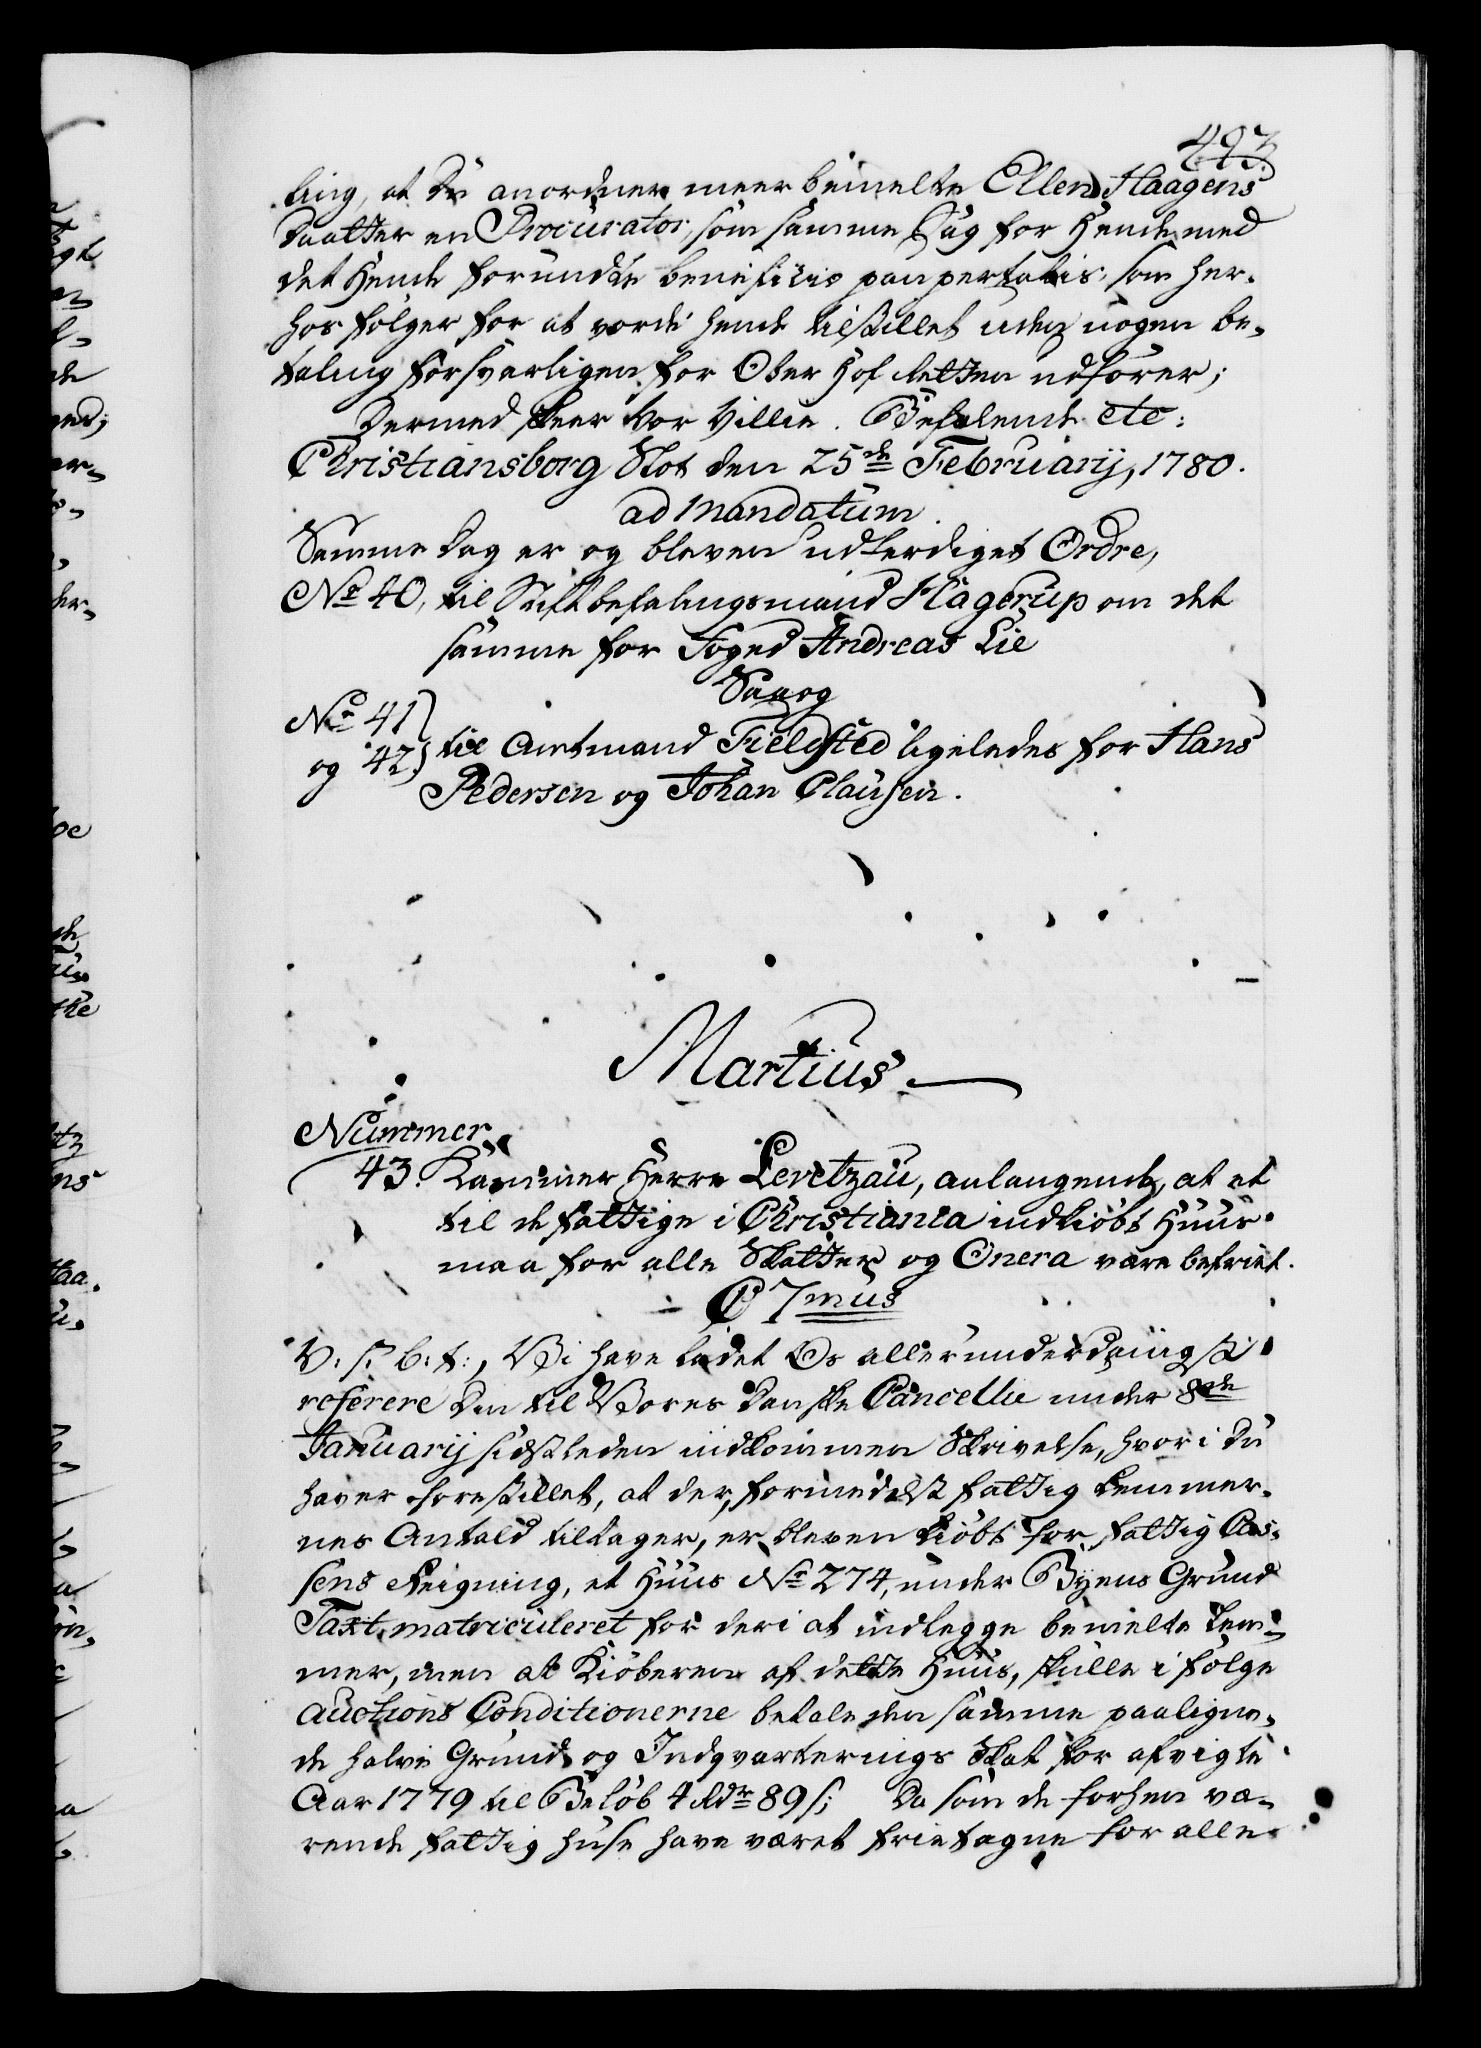 493.
ling, at du anordner meerbemelte Ellen Haagens
Daatter en Procurator, som samme Sag for Hende med
det Hende forundte beneficio paupertatis, som her-
hos følger for at vorde hende tilstillet uden nogen be-
taling forsvarligen for Ober Hof Retten udfører;
Dermed skeer Vor Villie. Befalende etc:
Christiansborg Slot den 25de Februarij, 1780.
ad mandatum.
Samme Dag er og bleven udferdiget Ordre,
No 40, til Stiftbefalingsmand Hagerup om det
samme for Foged Andreas Lie
Saa og
No 41
og 42) til Amtmand Fieldsted ligeledes for Hans
Pedersen og Johan Clausen.
Martius
Nummer
43. Kammer Herre Levetzau, anlangende, at et
til de fattige i Christiania indkiøbt Huus
maa for alle Skatter og Onera være befriet.
C 7mus
V. s. b. t:, Vi have ladet Os allerunderdanigst
referere Din til Vores Danske Cancellie under 8de
Januarij sidstleden indkommen Skrivelse, hvori Du
haver forestillet, at der, formedelst fattig Lemmer-
nes Antald tiltager, er bleven kiøbt for fattig Cas-
sens Reigning, et Huus No 274, under Byens Grund
Taxt matriculeret for deri at indlegge bemelte Lem-
mer, men at Kiøberen af dette Huus, skulle i følge
Auctions Conditionerne betale den samme paaligne-
de halve Grund og Indqvarterings Skat for afvigte
Aar 1779 til Beløb 4 Rdr 89 s; Da som de forhen væ-
rende fattig Huse have været frietagne for alle